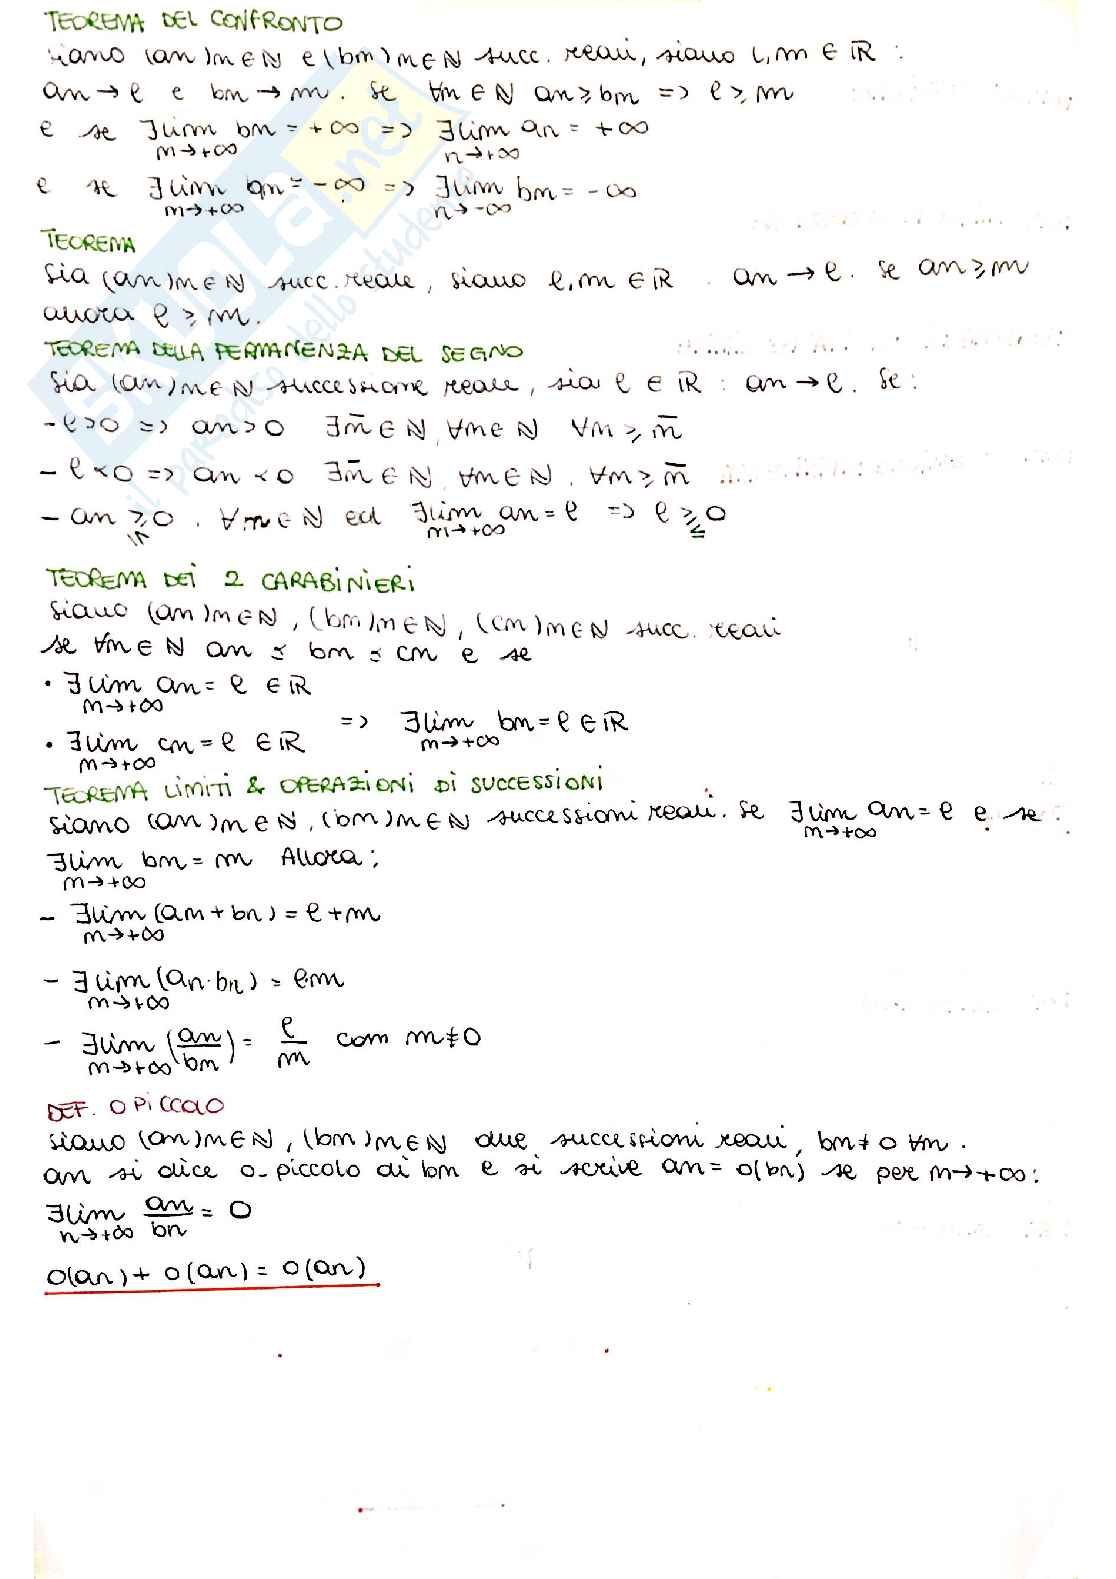 TEOREMA DEL CONFRONTO
siano (an)n∈ℕ e (bn)n∈ℕ succ. reali, siano l, m ∈ ℝ̄ :
an → l e bn → m. se ∀n ∈ ℕ an ≥ bn => l ≥ m
e se ∃lim bn = +∞ => ∃lim an = +∞
n→+∞ n→+∞
e se ∃lim an = -∞ => ∃lim bn = -∞
n→+∞ n→-∞
TEOREMA
Sia (an)n∈ℕ succ. reale, siano l, m ∈ ℝ̄ . an → l. se an ≥ m
allora l ≥ m.
TEOREMA DELLA PERMANENZA DEL SEGNO
Sia (an)n∈ℕ successione reale, sia l ∈ ℝ̄ : an → l. Se:
- l > 0 => an > 0 ∃n̄ ∈ ℕ, ∀n ∈ ℕ ∀n ≥ n̄
- l < 0 => an < 0 ∃n̄ ∈ ℕ, ∀n ∈ ℕ, ∀n ≥ n̄
- an ≥ 0, ∀n ∈ ℕ ed ∃lim an = l => l ≥ 0
≤ n→+∞ ≤
TEOREMA DEI 2 CARABINIERI
Siano (an)n∈ℕ, (bn)n∈ℕ, (cn)n∈ℕ succ. reali
se ∀n ∈ ℕ an ≤ bn ≤ cn e se
• ∃lim an = l ∈ ℝ̄
n→+∞
=> ∃lim bn = l ∈ ℝ̄
n→+∞
• ∃lim cn = l ∈ ℝ̄
n→+∞
TEOREMA LIMITI & OPERAZIONI DI SUCCESSIONI
Siano (an)n∈ℕ, (bn)n∈ℕ successioni reali. Se ∃lim an = l e se
n→+∞
∃lim bn = m Allora:
n→+∞
- ∃lim (an + bn) = l + m
n→+∞
- ∃lim (an · bn) = l·m
n→+∞
- ∃lim (an/bn) = l/m con m ≠ 0
n→+∞
DEF. O PICCOLO
Siano (an)n∈ℕ, (bn)n∈ℕ due successioni reali, bn ≠ 0 ∀n.
an si dice o-piccolo di bn e si scrive an = o(bn) se per n→+∞:
∃lim an/bn = 0
n→+∞
o(an) + o(an) = o(an)
SKUOLA.net
il paradiso dello studente